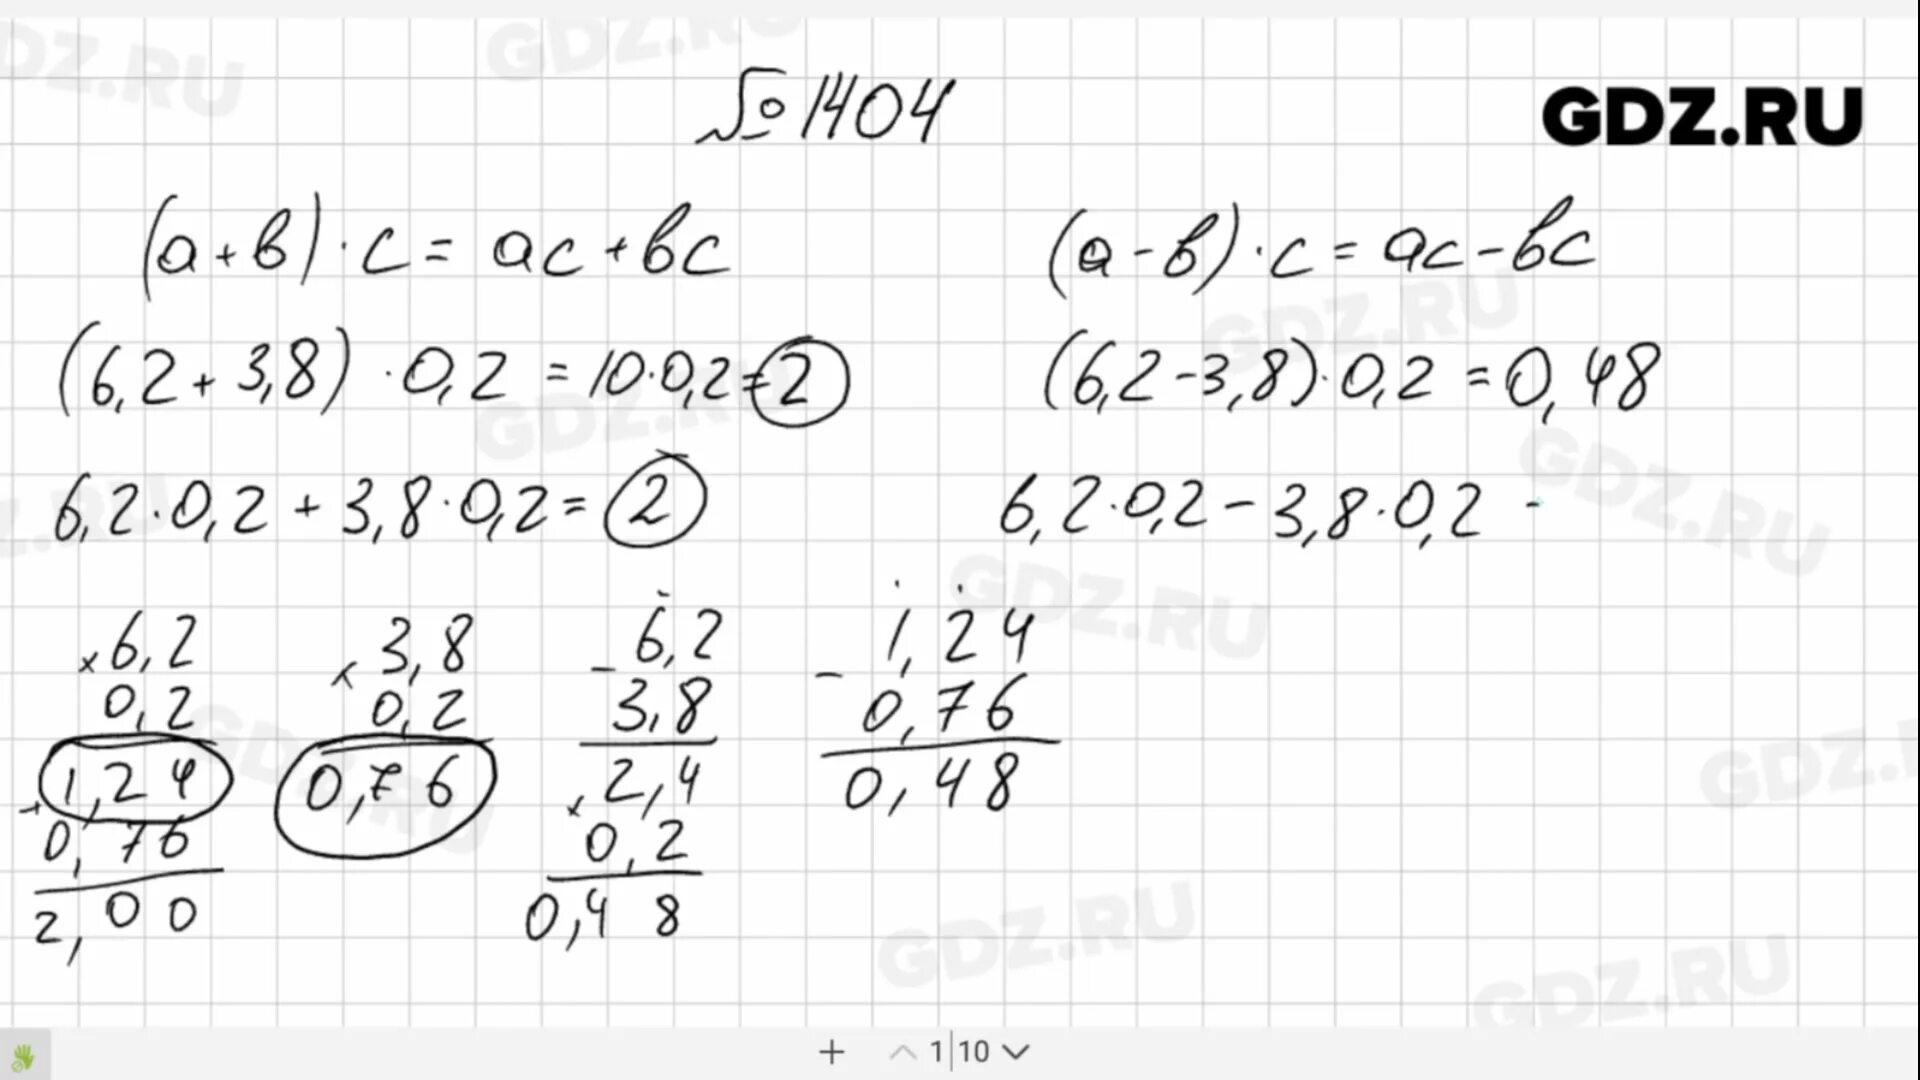 №1404
GDZ.RU
(a+b)·c = ac+bc
(a-b)·c = ac-bc
(6,2+3,8)·0,2 = 10·0,2=2
(6,2-3,8)·0,2 = 0,48
6,2·0,2 + 3,8·0,2 = 2
6,2·0,2 - 3,8·0,2 -
× 6,2
0,2
1,24
+ 0,76
2,00
× 3,8
0,2
0,76
- 6,2
3,8
2,4
× 0,2
0,48
- 1,24
0,76
0,48
+ 1 10